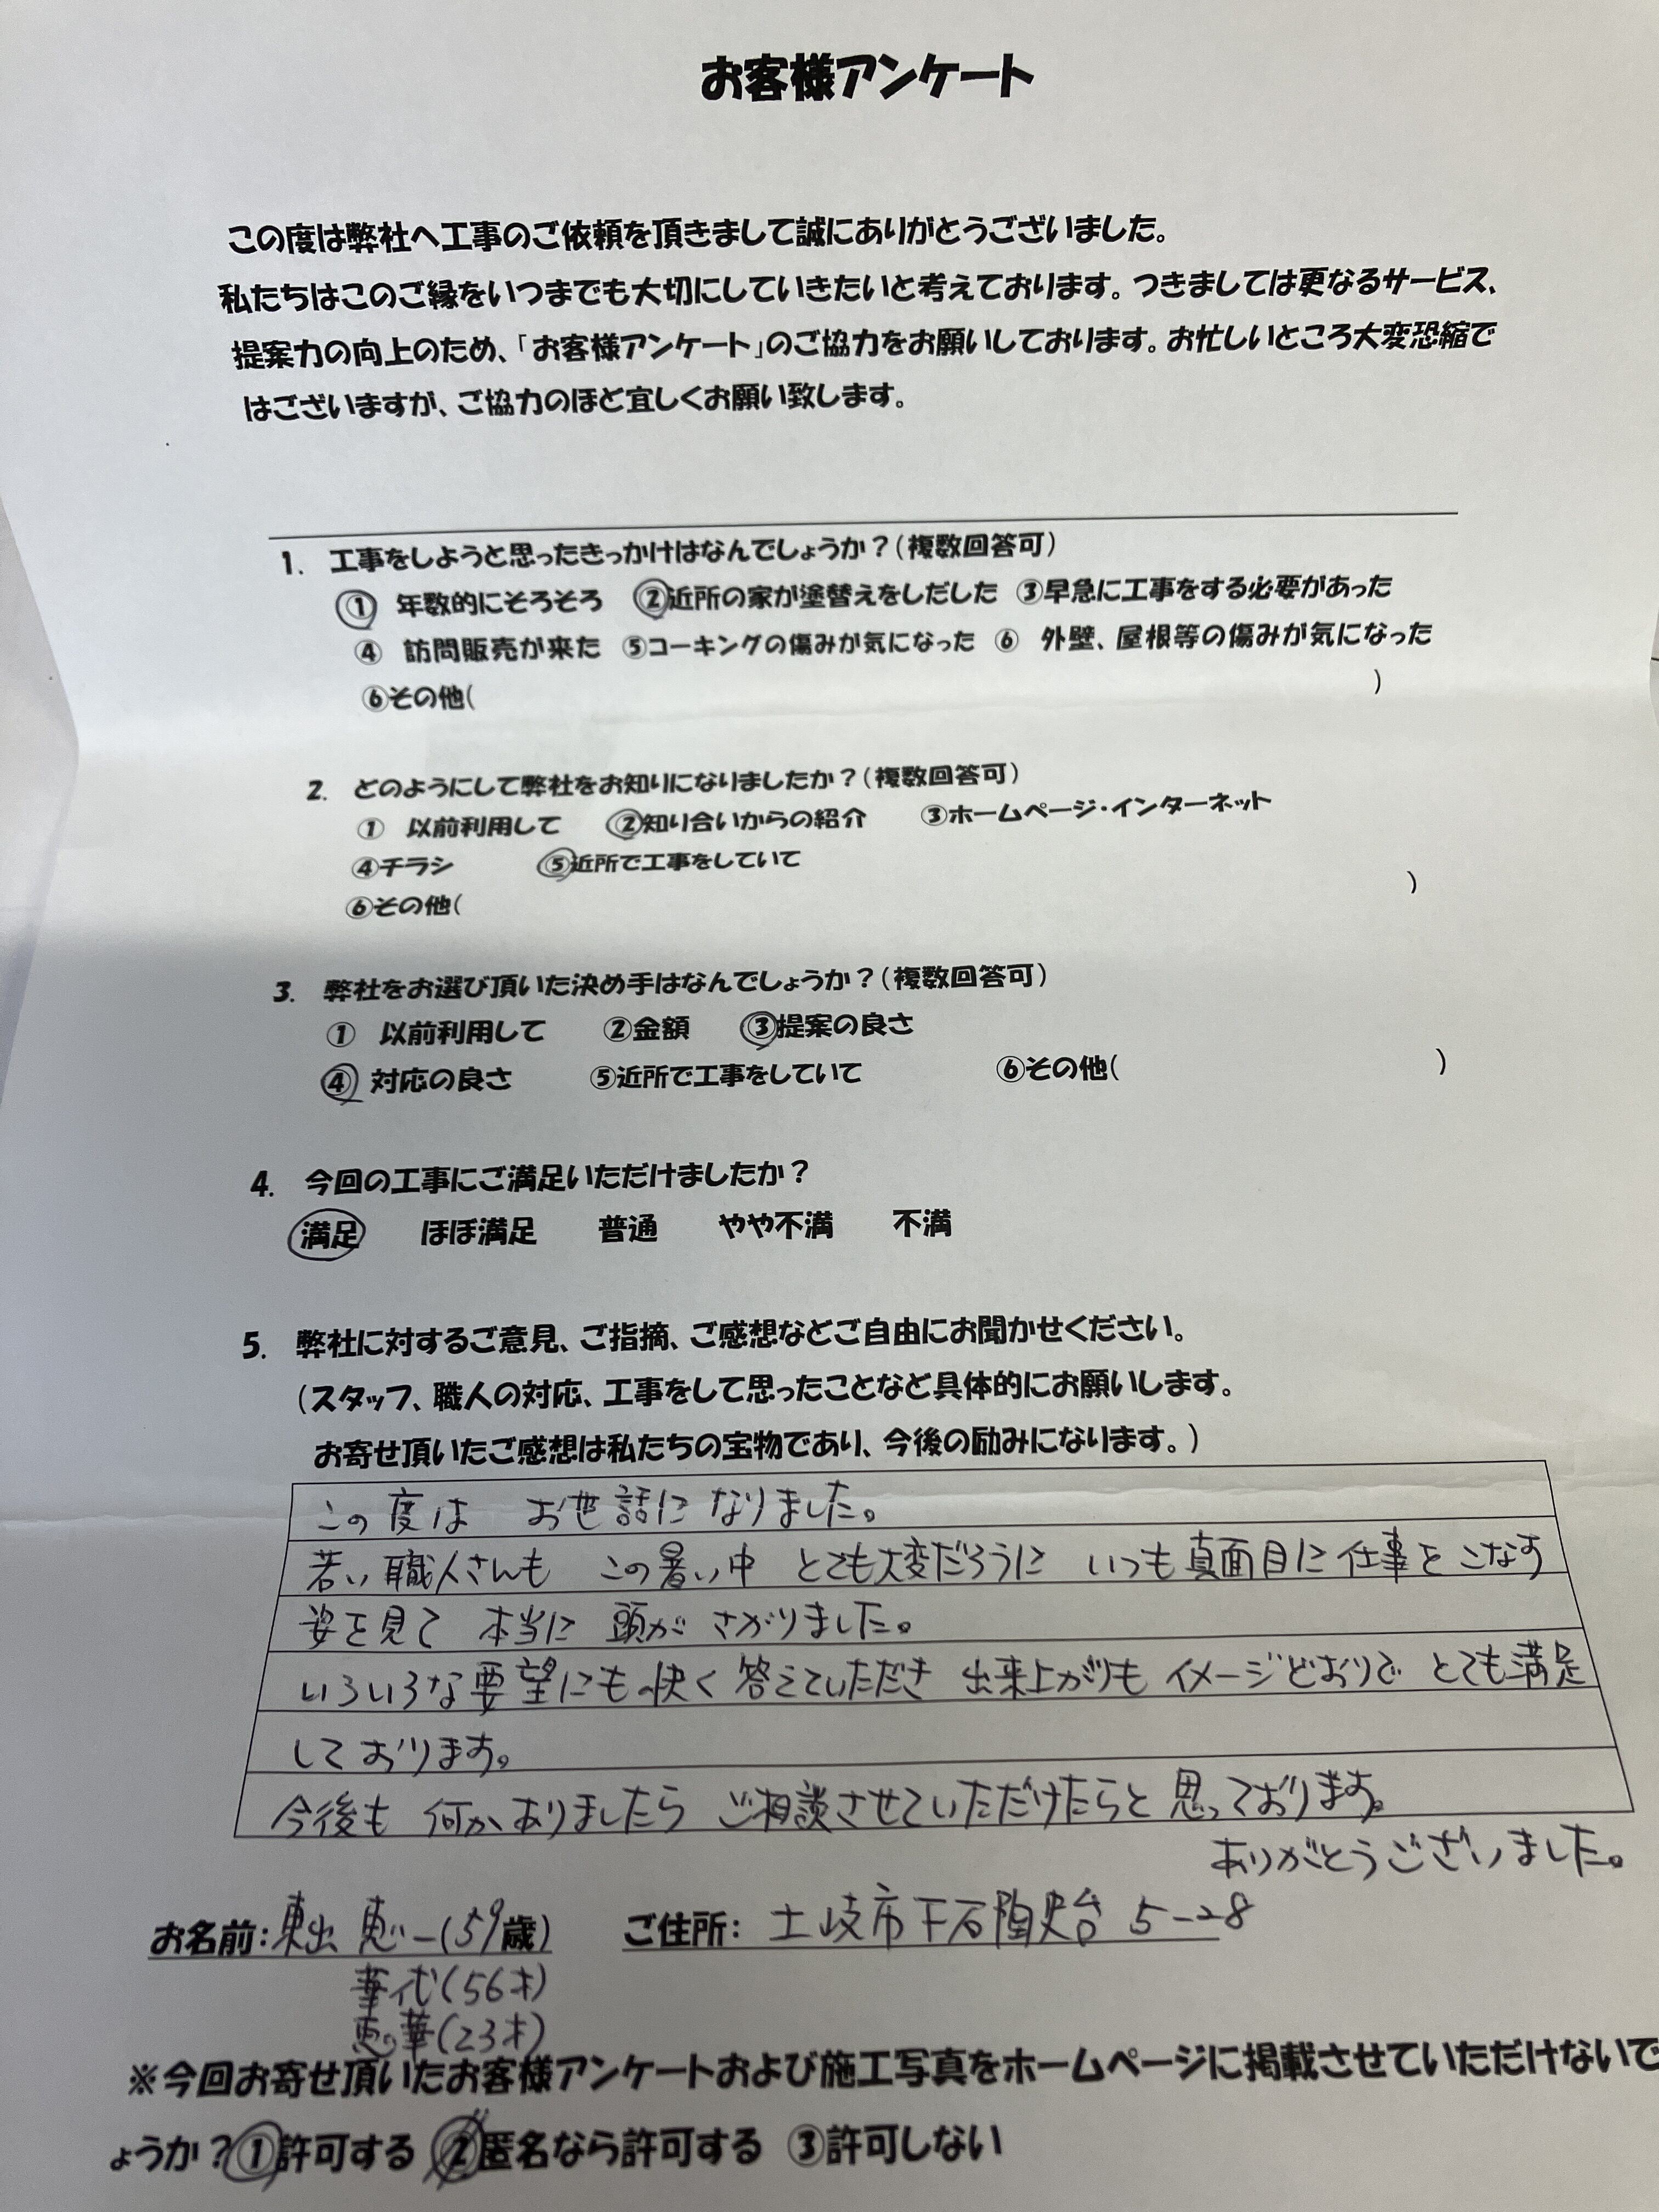 お客様アンケート
この度は弊社へ工事のご依頼を頂きまして誠にありがとうございました。
私たちはこのご縁をいつまでも大切にしていきたいと考えております。つきましては更なるサービス、
提案力の向上のため、「お客様アンケート」のご協力をお願いしております。お忙しいところ大変恐縮で
はございますが、ご協力のほど宜しくお願い致します。
1. 工事をしようと思ったきっかけはなんでしょうか？（複数回答可）
① 年数的にそろそろ ②近所の家が塗替えをしだした ③早急に工事をする必要があった
④ 訪問販売が来た ⑤コーキングの傷みが気になった ⑥ 外壁、屋根等の傷みが気になった
⑥その他（ ）
2. どのようにして弊社をお知りになりましたか？（複数回答可）
① 以前利用して ②知り合いからの紹介 ③ホームページ・インターネット
④チラシ ⑤近所で工事をしていて
⑥その他（ ）
3. 弊社をお選び頂いた決め手はなんでしょうか？（複数回答可）
① 以前利用して ②金額 ③提案の良さ
④ 対応の良さ ⑤近所で工事をしていて ⑥その他（ ）
4. 今回の工事にご満足いただけましたか？
満足 ほぼ満足 普通 やや不満 不満
5. 弊社に対するご意見、ご指摘、ご感想などご自由にお聞かせください。
（スタッフ、職人の対応、工事をして思ったことなど具体的にお願いします。
お寄せ頂いたご感想は私たちの宝物であり、今後の励みになります。）
この度は お世話に なりました。
若い職人さんも この暑い中 とても大変だろうに いつも真面目に仕事をこなす
姿を見て 本当に 頭が さがりました。
いろいろな要望にも快く 答えていただき 出来上がりも イメージどおりで とても満足
しております。
今後も 何かありましたら ご相談させていただけたらと思っております。
ありがとうございました。
お名前：東出 恵一（59歳） ご住所： 土岐市下石陶史台 5-28
華代（56才）
恵華（23才）
※今回お寄せ頂いたお客様アンケートおよび施工写真をホームページに掲載させていただけないで
ょうか？①許可する ②匿名なら許可する ③許可しない